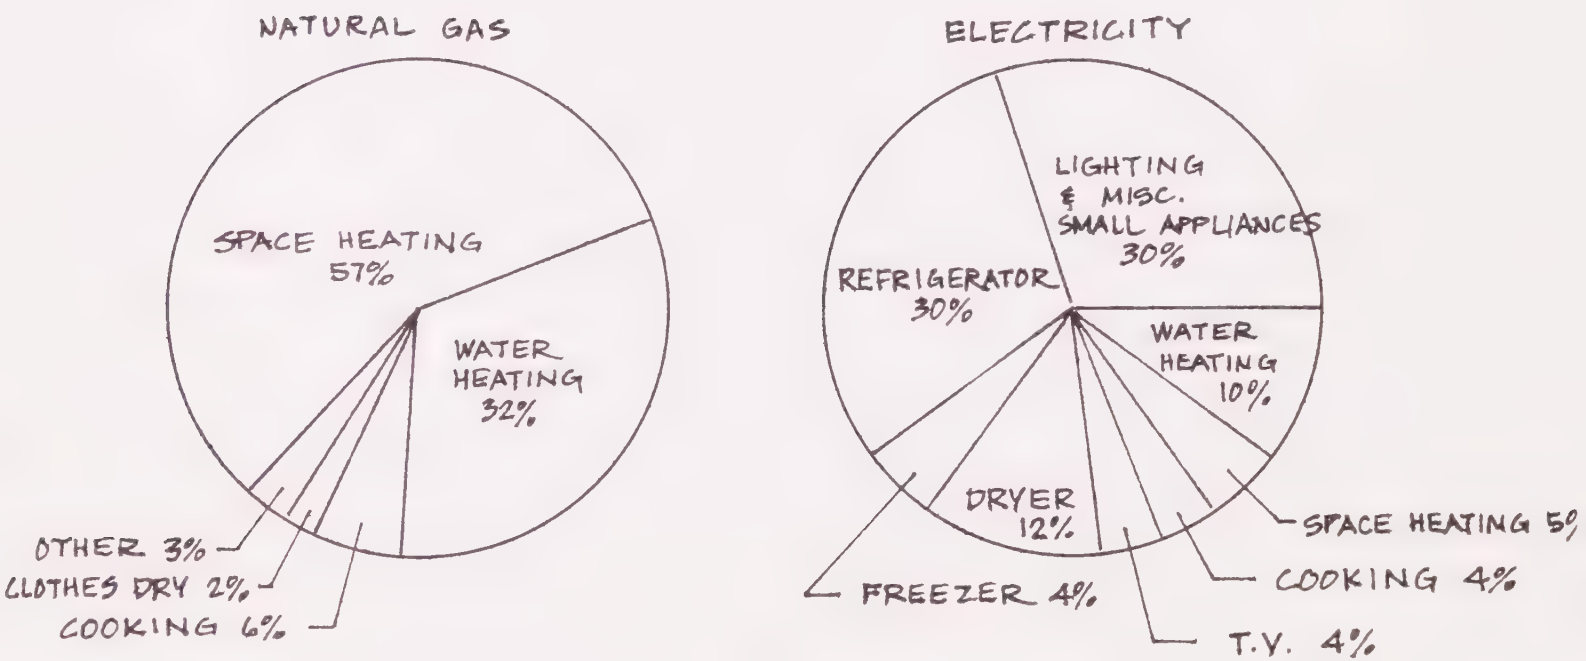 NATURAL GAS
SPACE HEATING
57%
WATER
HEATING
32%
OTHER 3%
CLOTHES DRY 2%
COOKING 6%
ELECTRICITY
LIGHTING
& MISC.
SMALL APPLIANCES
30%
REFRIGERATOR
30%
WATER
HEATING
10%
DRYER
12%
SPACE HEATING 5%
COOKING 4%
FREEZER 4%
T.V. 4%